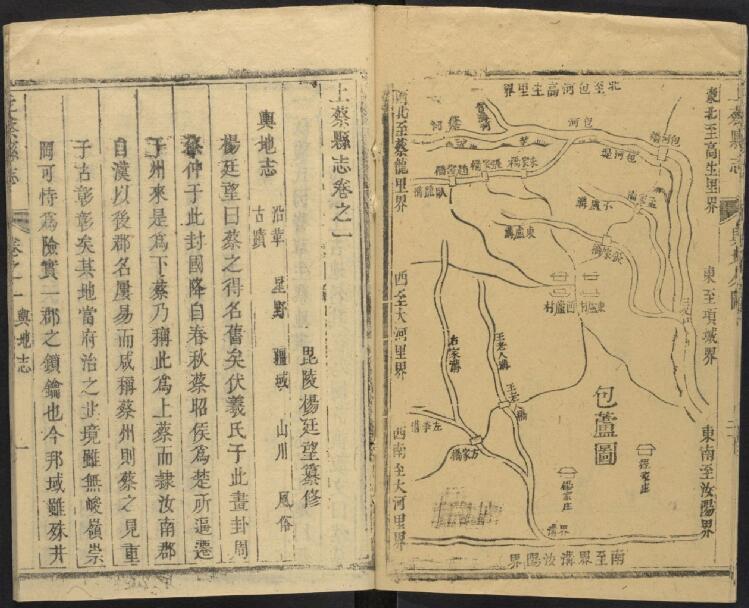 包蘆圖
北至包河高生里界
東北至高生里界
東至項城界
東南至汝陽界
南至界溝汝陽界
西南至大河里界
西至大河里界
西北至蔡龍里界
包河
包河橋
包河堤
張家橋
東蘆溝
東蘆村
西蘆村
王老人溝
方家橋
界溝
楊家庄
上蔡縣志卷之一
毘陵楊廷望纂修
輿地志
沿革 星野 疆域 山川 風俗
古蹟
楊廷望曰蔡之得名舊矣伏羲氏于此畫卦周
蔡仲于此封國降自春秋蔡昭侯為楚所逼遷
于州來是為下蔡乃稱此為上蔡而隸汝南郡
自漢以後郡名屢易而咸稱蔡州則蔡之見重
于古彰彰矣其地當府治之北境雖無峻嶺崇
岡可恃為險實一郡之鎖鑰也今邦域雖殊井
上蔡縣志
卷之一
輿地志
一